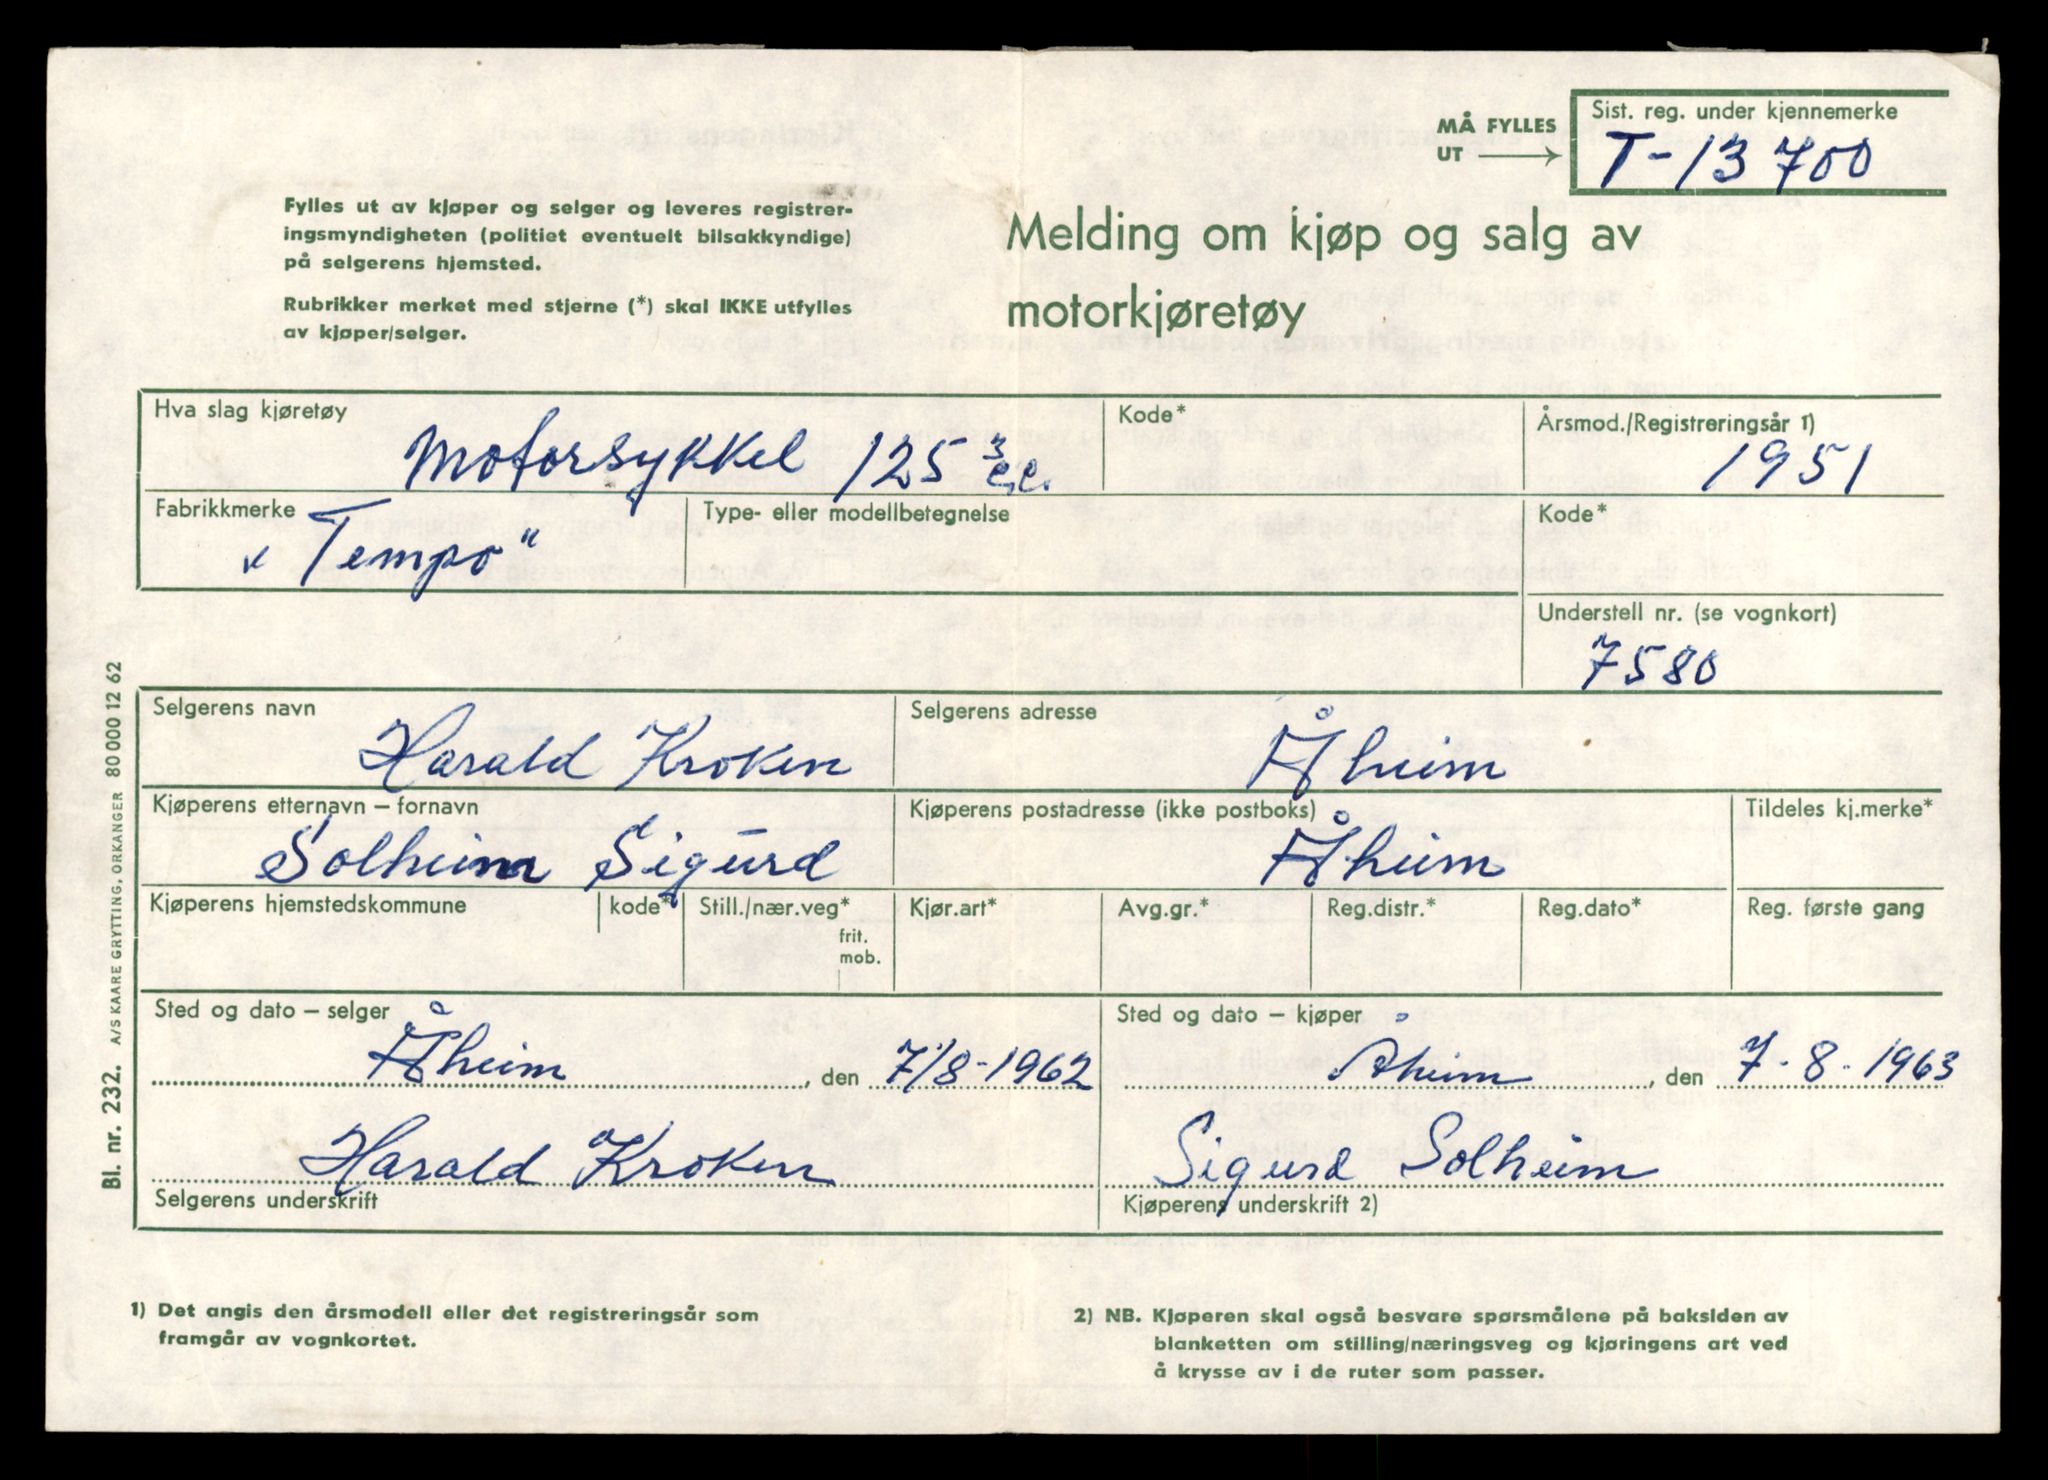 MÅ FYLLES
UT
Sist. reg. under kjennemerke
T-13700
Fylles ut av kjøper og selger og leveres registrer-
ingsmyndigheten (politiet eventuelt bilsakkyndige)
på selgerens hjemsted.
Rubrikker merket med stjerne (*) skal IKKE utfylles
av kjøper/selger.
Melding om kjøp og salg av
motorkjøretøy
Hva slag kjøretøy
Motorsykkel 125
Kode*
Årsmod./Registreringsår 1)
1951
Fabrikkmerke
"Tempo"
Type- eller modellbetegnelse
Kode*
Understell nr. (se vognkort)
7580
Selgerens navn
Harald Kroken
Selgerens adresse
Åheim
Kjøperens etternavn – fornavn
Solheim Sigurd
Kjøperens postadresse (ikke postboks)
Åheim
Tildeles kj.merke*
Kjøperens hjemstedskommune
kode*
Still./nær.veg*
frit.
mob.
Kjør.art*
Avg.gr.*
Reg.distr.*
Reg.dato*
Reg. første gang
Sted og dato – selger
Åheim, den 7/8-1962
Sted og dato – kjøper
Åheim, den 7-8-1963
Harald Kroken
Selgerens underskrift
Sigurd Solheim
Kjøperens underskrift 2)
1) Det angis den årsmodell eller det registreringsår som
framgår av vognkortet.
2) NB. Kjøperen skal også besvare spørsmålene på baksiden av
blanketten om stilling/næringsveg og kjøringens art ved
å krysse av i de ruter som passer.
Bl. nr. 232. A/S KAARE GRYTTING, ORKANGER 80000 12 62